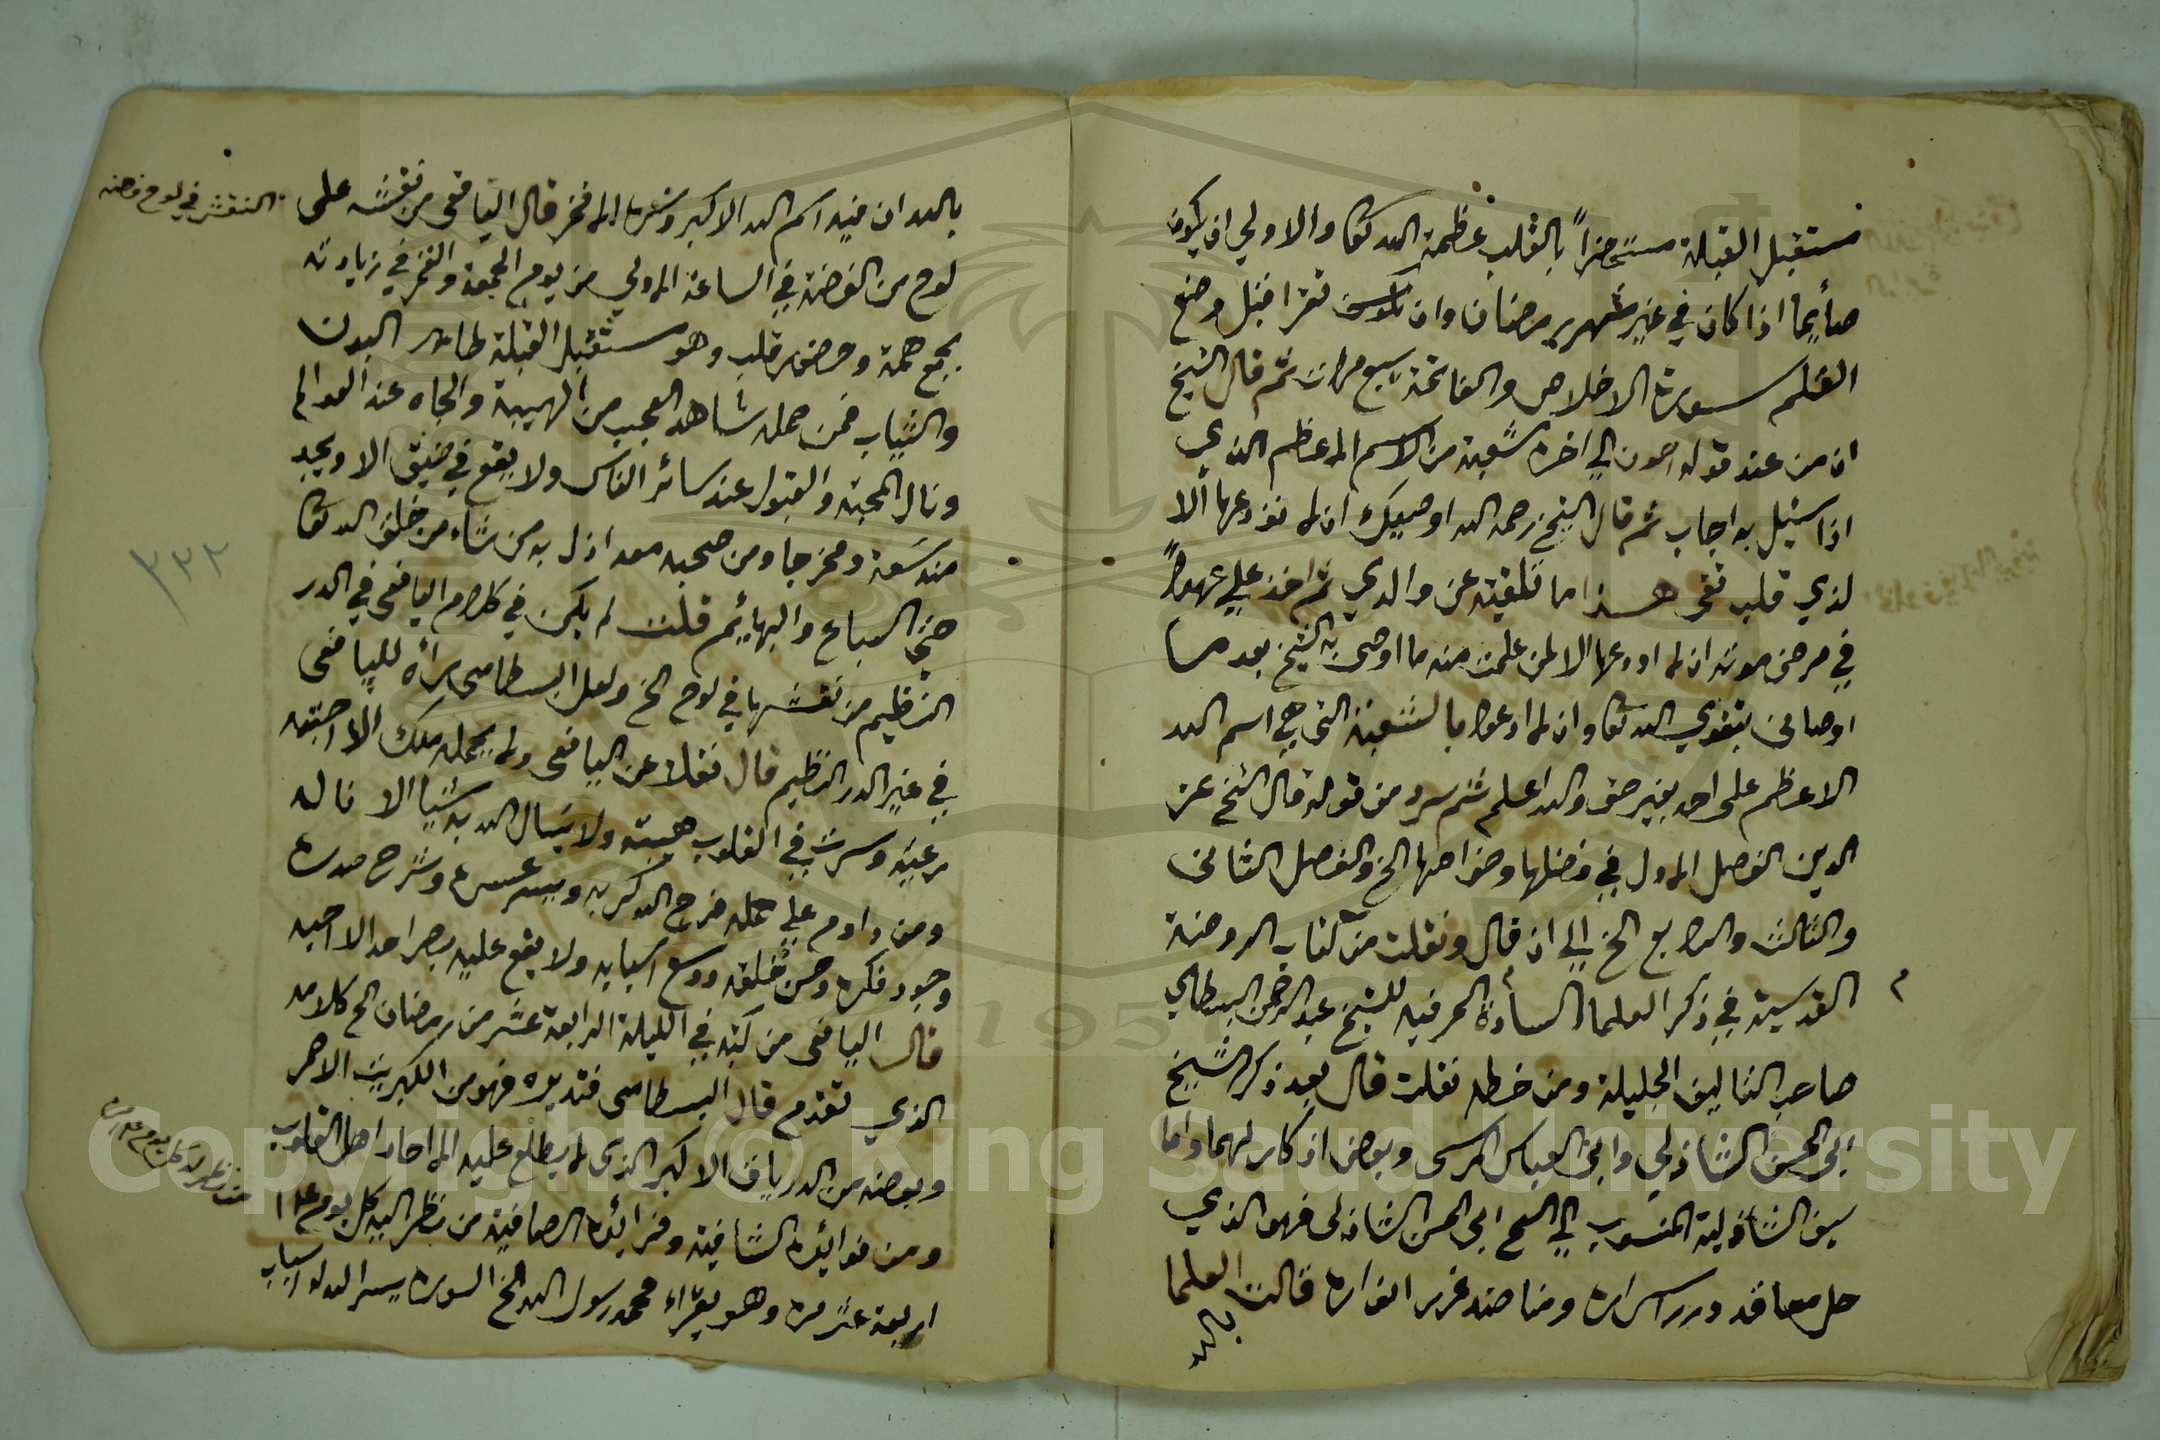 مستقبل القبلة مستحضراً بالقلب عظمة الله تعا والاولي ان يكون
صايما اذا كان في غير شهر رمضان وان تقرا قبل وضع
القلم سورة الاخلاص والفاتحة سبع مرات ثم قال الشيخ
ان من عند قوله احون الي اخره شعبة من الاسم الاعظم الذي
اذا سئيل به اجاب ثم قال الشيخ رحمه الله اوصيك ان لا تودعها الا
لذي قلب تقي هذا ما تلقيته عن والدي ثم اخذ علي عهوداً
في مرض موته ان لا اودعها الا لمن علمت منه ما اوصى به الشيخ بعد ما
اوصاني بتقوي الله تعا وان لا ادعوا بالشعبة التي هي اسم الله
الاعظم على احد بغير حق والله اعلم ثم سرد من قوله قال الشيخ عز
الدين الفصل الاول في فضلها وخواصها الخ والفصل الثاني
والثالث والرابع الخ الي ان قال ونقلت من كتاب الروضة
القدسية في ذكر العلما السادة الحرفيه للشيخ عبد الرحمن البسطامي
صاحب التاليف الجليلة ومن خطه نقلت قال بعد ذكر الشيخ
ابي الحسن الشاذلي وابي العباس المرسى وبعض اذكار لهما واما
سيف الشاذلية المنسوب الي الشيخ ابي الحسن الشاذلي فهو الذي
حل معاقد درر اسراره ومناضد غرر انواره قالت العلما
بالله
بالله ان فيه اسم الله الاكبر وسره الافخر قال اليافعى من نقشه على
النقش في لوح فضه
لوح من الفضة في الساعة الاولي من يوم الجمعة والقمر في زيادته
بجمع همة وحضور قلب وهو مستقبل القبلة طاهر البدن
والثياب فمن حمله شاهد العجب من الهيبة والجاه عند العوالم
ونال المحبة والقبول عند سائر الناس ولا يقع في ضيق الا ويجد
منه سَعة ومخرجا ومن صحبه معه اذل به من شاء من خلق الله تعا
حتي السباع والبهايئم قلت لم يكن في كلام اليافعى في الدر
٢٣٢
النظيم من نقشها في لوح الخ ولعل البسطامى رأه لليافعى
في غير الدر النظيم قال نقلا عن اليافعى ولا يحمله ملك الا احبته
رعيته وسرت في القلوب هيبته ولا يسال الله به شيا الا ناله
ومن داوم علي حمله فرج الله كربه ويسر عسره وشرح صدره
وجود فكره وحسن خلقه ووسع اسبابه ولا يقع عليه بصر احد الا احبه
قال اليافعى من كتبه في الليلة الرابعة عشر من رمضان الخ كلامه
الذي تقدم قال البسطامى فتدبره فهو من الكبريت الاحمر
وبعضه من الدرياق الاكبر الذى لا يطلع عليه الا احاد اهل القلوب
ومن فوائده الشافية وفرائده الصافية من نظر اليه كل يوم ١٤
من نظر اليه كل يوم
اربعة عشر مره وهو يقراء محمد رسول الله الخ السوره يسر الله له اسباب